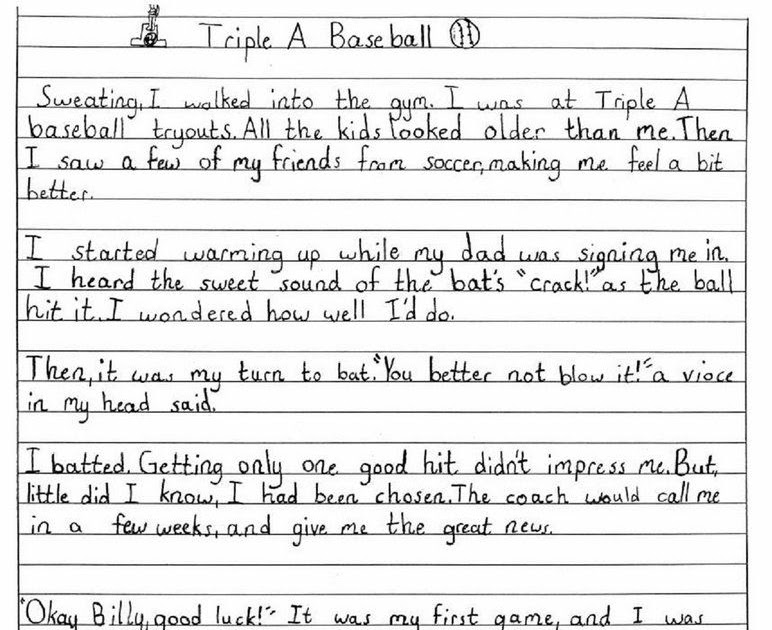 Triple A Baseball
Sweating, I walked into the gym. I was at Triple A
baseball tryouts. All the kids looked older than me. Then
I saw a few of my friends from soccer, making me feel a bit
better.
I started warming up while my dad was signing me in.
I heard the sweet sound of the bat's "crack!" as the ball
hit it. I wondered how well I'd do.
Then, it was my turn to bat. "You better not blow it!" a vioce
in my head said.
I batted. Getting only one good hit didn't impress me. But,
little did I know, I had been chosen. The coach would call me
in a few weeks, and give me the great news.
"Okay Billy, good luck!" It was my first game, and I was